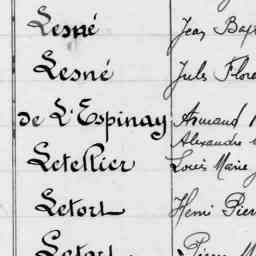 Lesné Jean Bap
Lesné Jules Flore
de L'Espinay Armand
Alexandre
Letellier Louis Marie
Letort Henri Pier
Letort Pierre M